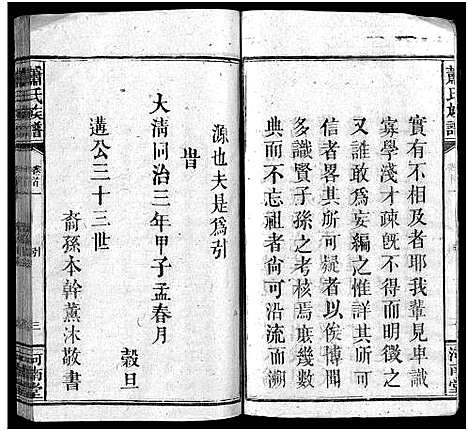 蕭氏族譜
實有不相及者耶我輩見卑識
寡學淺才疎既不得而明徵之
又誰敢爲妄編之惟詳其可
信者畧其所可疑者以俟博聞
多識賢子孫之考核焉壞幾數
典而不忘祖者尙可沿流而溯
河南堂
源也夫是爲引
旹
大淸同治三年甲子孟春月
穀旦
遘公三十三世
裔孫本幹薰沐敬書
蕭氏族譜
卷首
引
三
河南堂